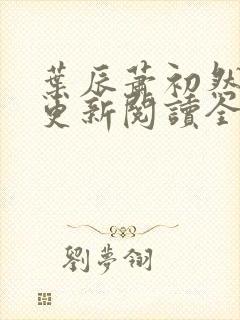 葉辰蕭初然
更新閱讀全
劉夢翎